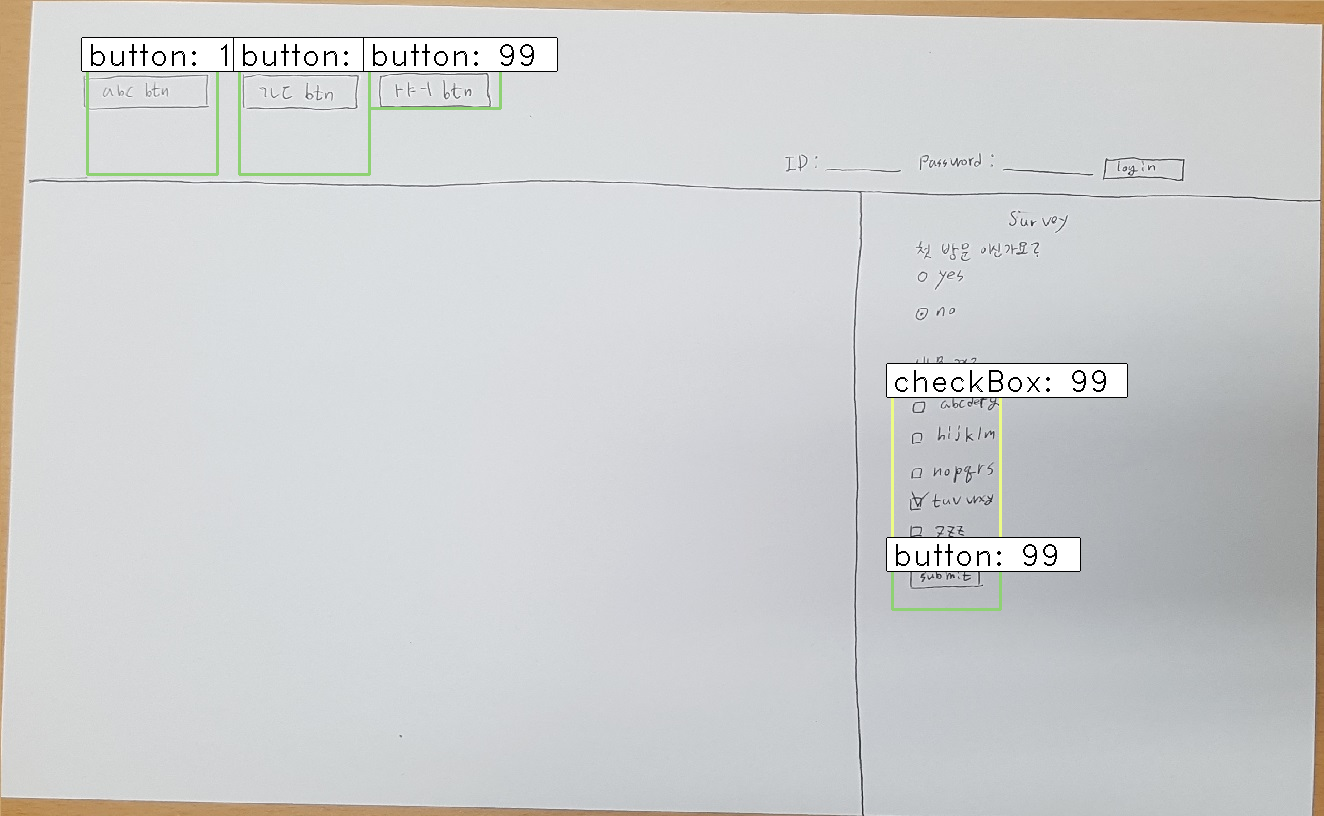 button: 1 button: button: 99
abc btn ㄱㄴㄷ btn ㅏㅑㅓ btn
ID: Password: login
Survey
첫 방문 이신가요?
yes
no
checkBox: 99
abcdefg
hijklm
nopqrs
tuvwxy
zzz
button: 99
submit